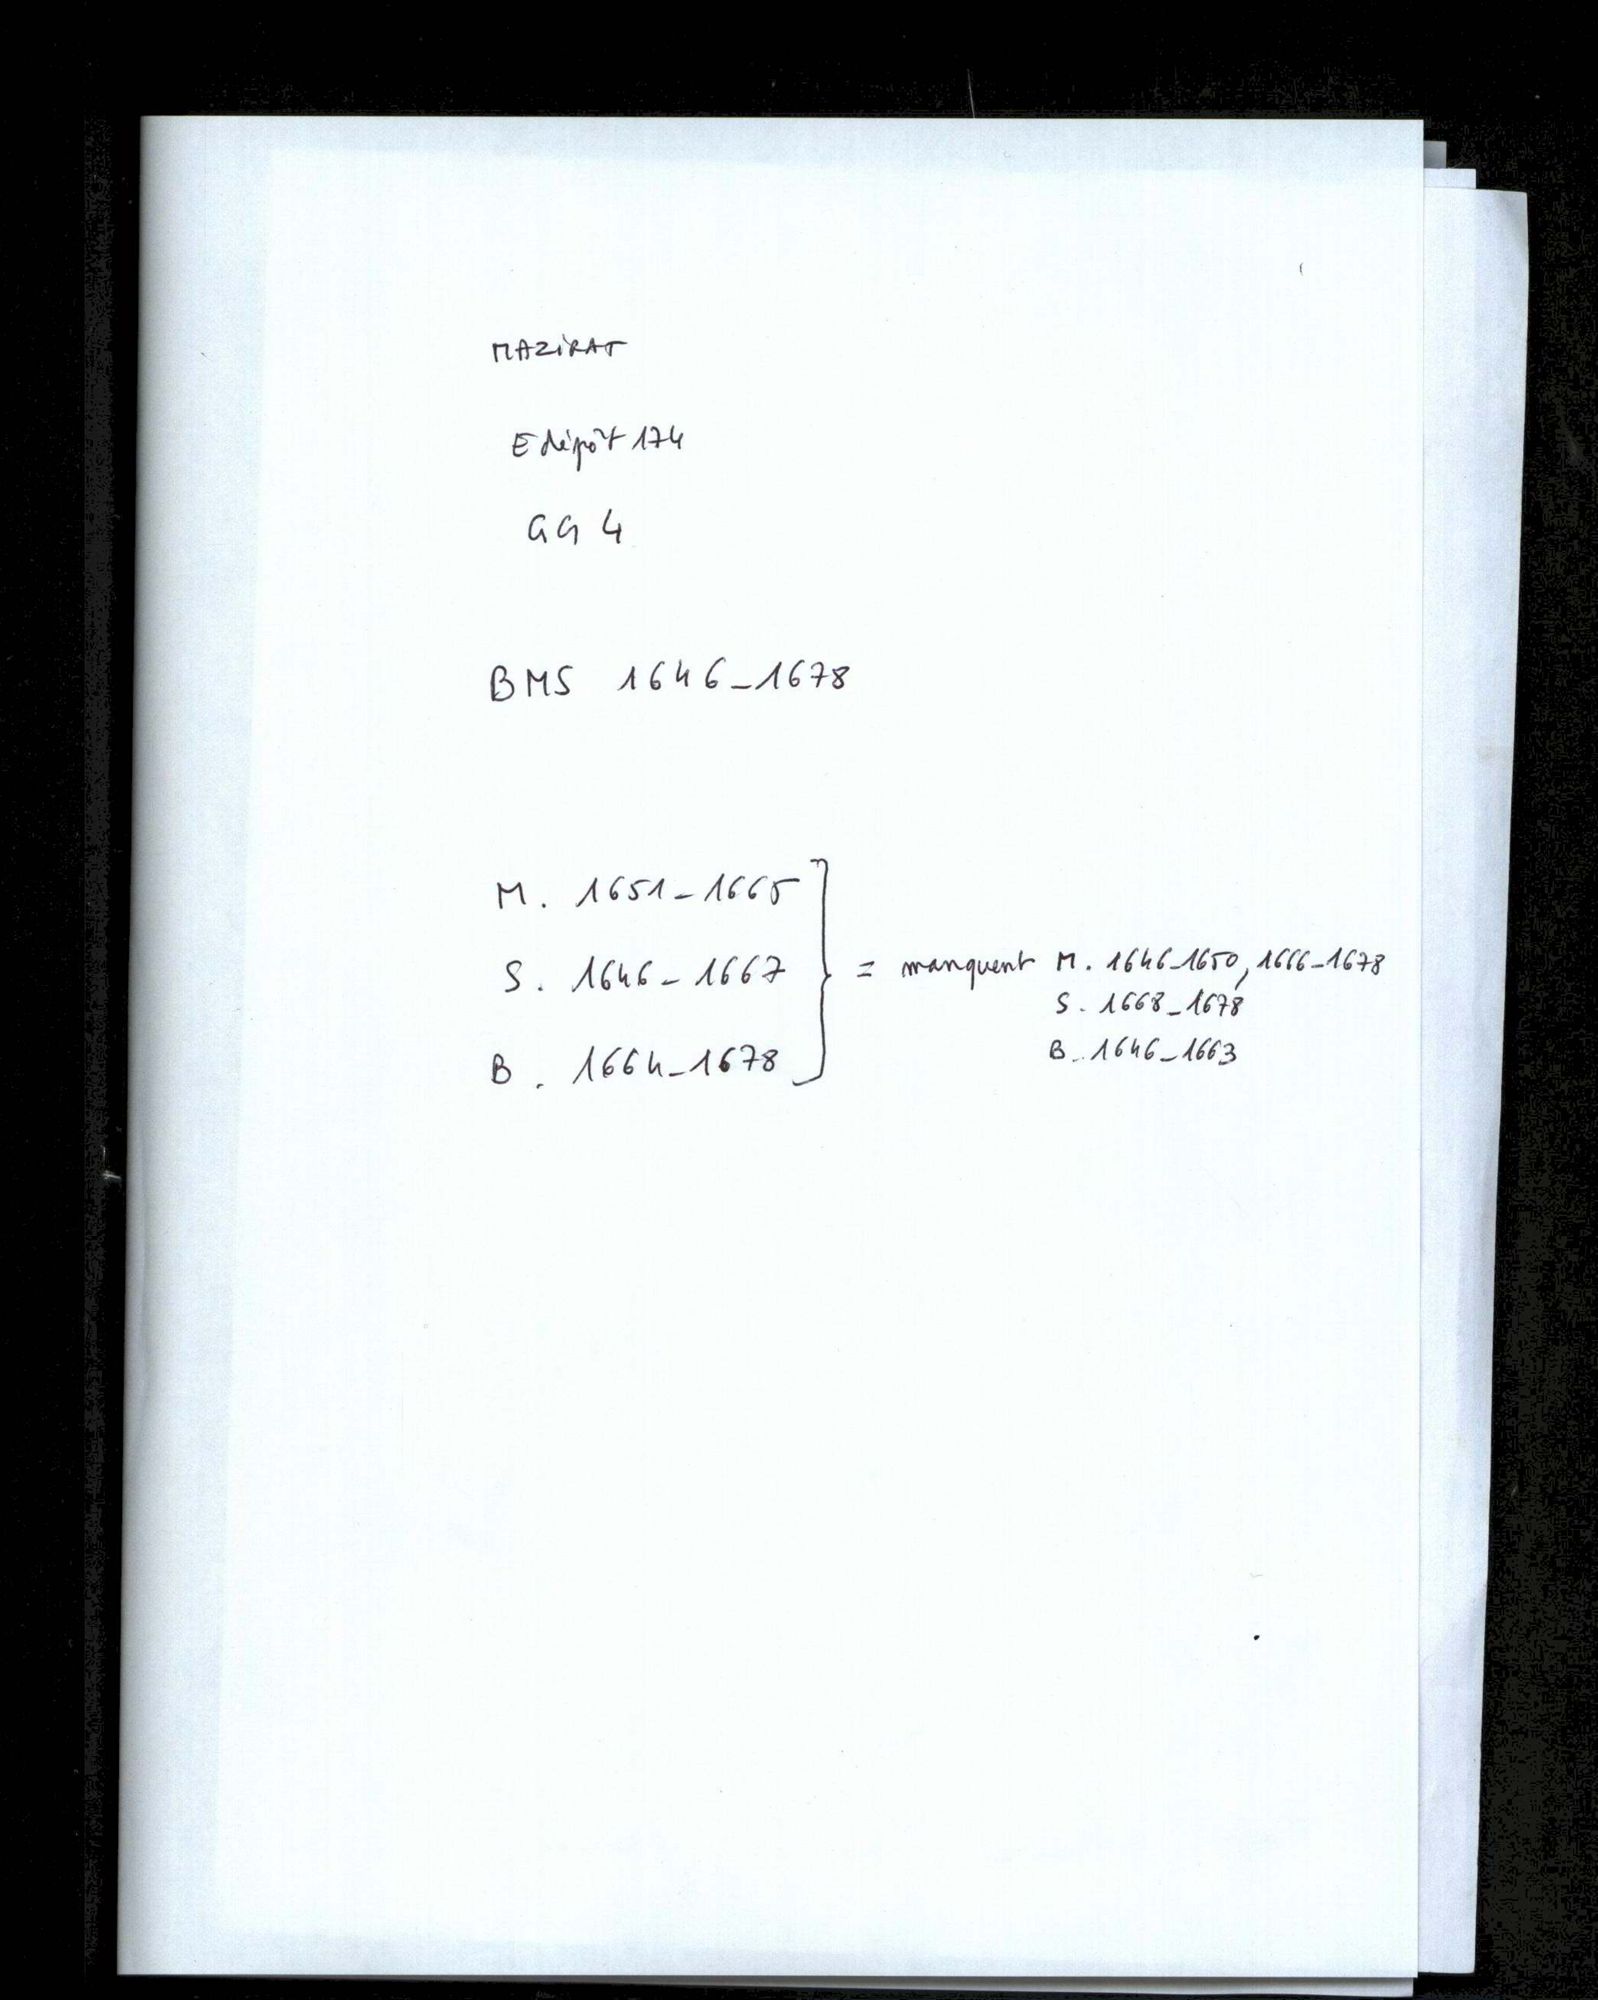 MAZIRAT
E dépôt 174
GG 4
BMS 1646-1678
M. 1651-1665
S. 1646-1667
B. 1664-1678
= manquent M. 1646-1650, 1666-1678
S. 1668-1678
B. 1646-1663